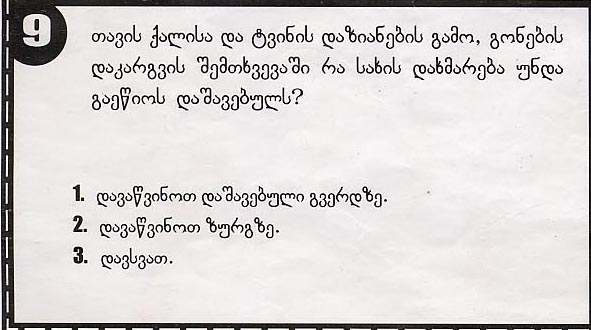 9
თავის ქალისა და ტვინის დაზიანების გამო, გონების
დაკარგვის შემთხვევაში რა სახის დახმარება უნდა
გაეწიოს დაშავებულს?
1. დავაწვინოთ დაშავებული გვერდზე.
2. დავაწვინოთ ზურგზე.
3. დავსვათ.